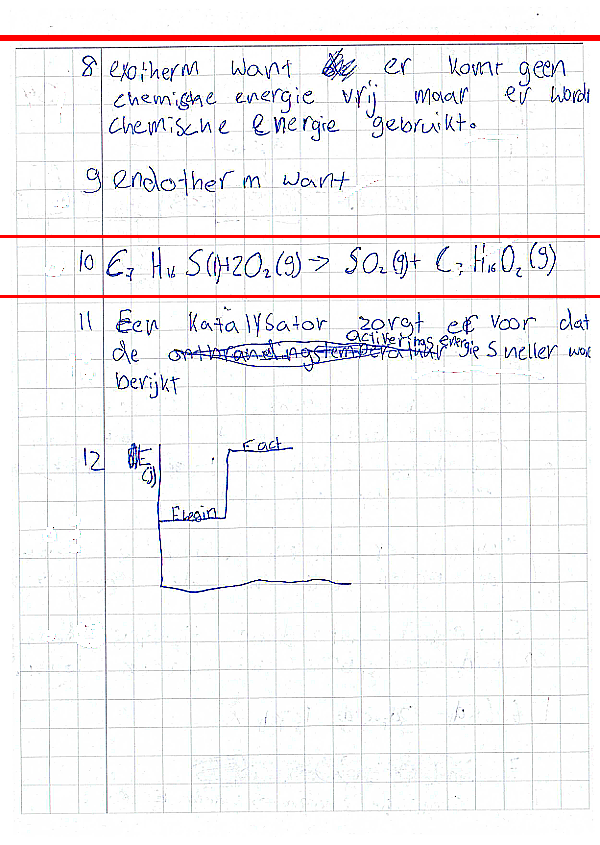 8 exotherm want er komt geen
chemische energie vrij maar er wordt
chemische energie gebruikt.
9 endotherm want
10 C₇ H₁₆ S(l)+2O₂(g) → SO₂(g)+ C₇ H₁₆O₂(g)
11 Een Katalysator zorgt er voor dat
de activerings energie sneller wor
berijkt
12 E
(J)
E act
Ebegin